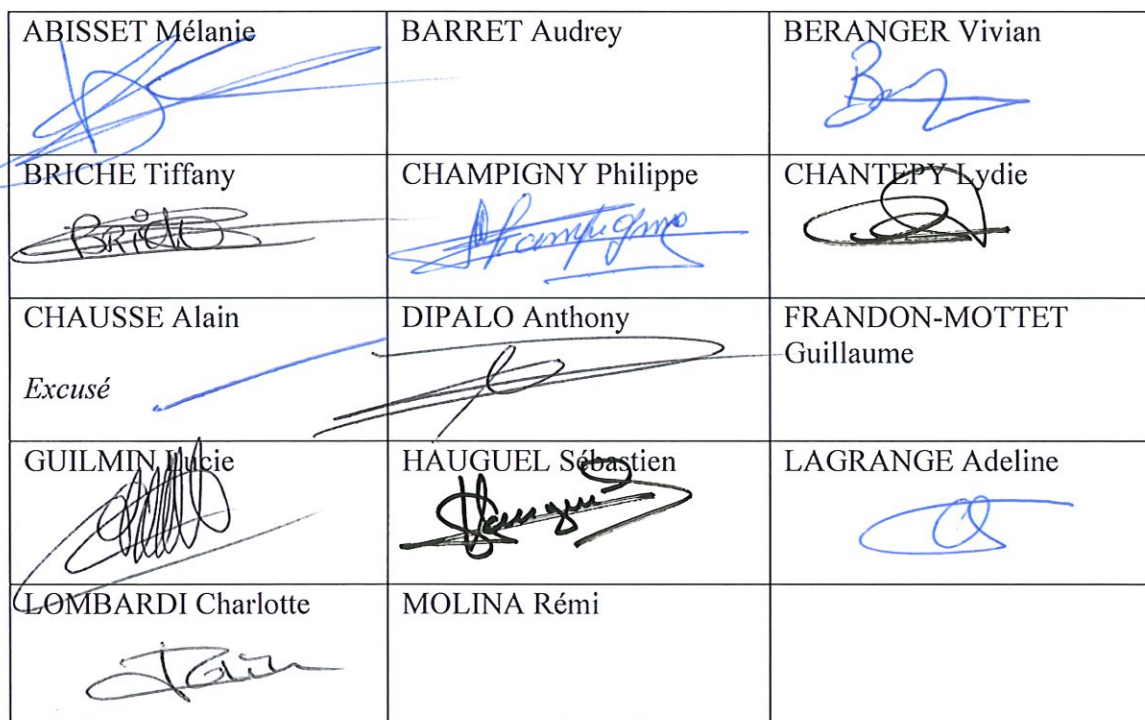 ABISSET Mélanie
BARRET Audrey
BERANGER Vivian
BRICHE Tiffany
CHAMPIGNY Philippe
CHANTEPY Lydie
CHAUSSE Alain
Excusé
DIPALO Anthony
FRANDON-MOTTET
Guillaume
GUILMIN Lucie
HAUGUEL Sébastien
LAGRANGE Adeline
LOMBARDI Charlotte
MOLINA Rémi